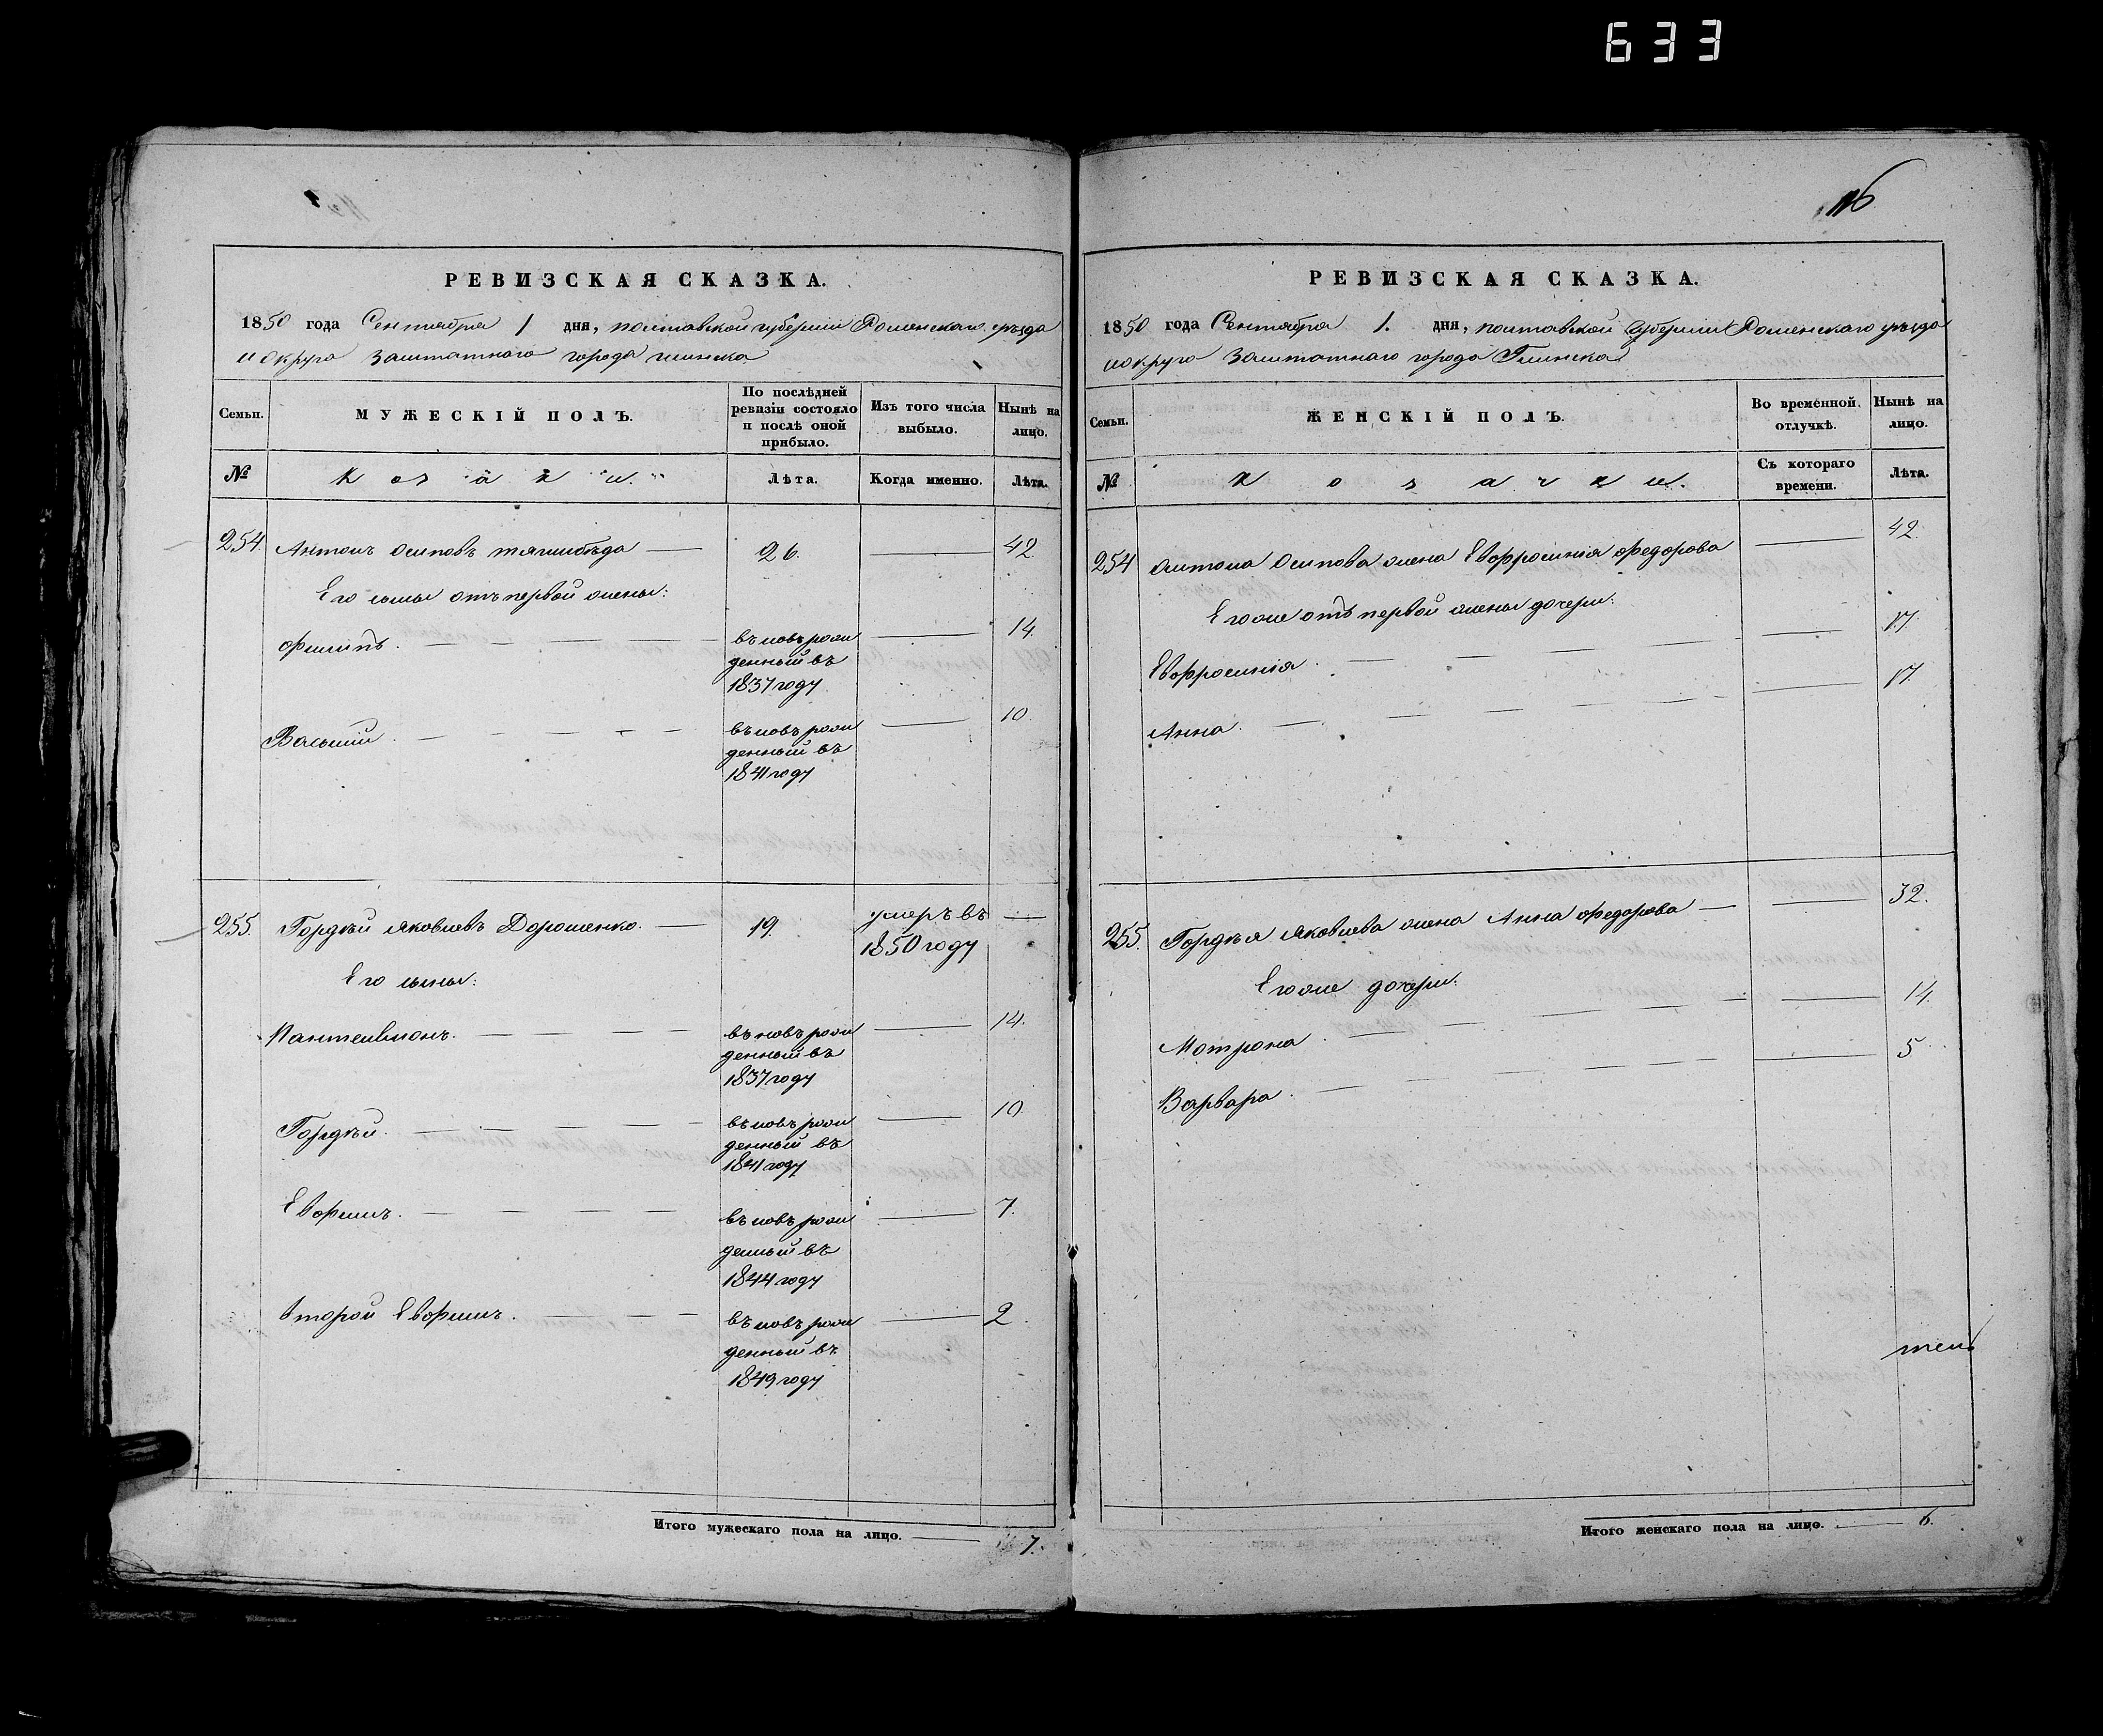 633
116
РЕВИЗСКАЯ СКАЗКА.
1850 года Сентября 1 дня, полтавской губернии Роменскаго уѣзда
и округа заштатнаго города глинска
Семьи. МУЖЕСКІЙ ПОЛЪ. По послѣдней ревизіи состояло и послѣ оной прибыло. Изъ того числа выбыло. Нынѣ на лицо.
№ Козаки. Лѣта. Когда именно. Лѣта.
254. Антонъ Осиповъ тягнибѣда — 26. — 42
Его сыны отъ первой жены:
Филипъ. — въ новь рож — 14.
денный въ
1837 году
Василий. — въ новь рож — 10.
денный въ
1841 году
255. Гордѣй Яковлевъ Дорошенко. — 19. умеръ въ —
1850 году
Его сыны:
Пантелимонъ. — въ новь рож — 14.
денный въ
1837 году
Гордѣй. — въ новь рож — 10.
денный въ
1841 году
Евфимъ. — въ новь рож — 7.
денный въ
1844 году
второй Евфимъ. — въ новь рож — 2.
денный въ
1849 году
Итого мужескаго пола на лицо. — 7.
РЕВИЗСКАЯ СКАЗКА.
1850 года Сентября 1. дня, полтавской Губернии Роменскаго уѣзда
и округа заштатнаго города Глинска
Семьи. ЖЕНСКІЙ ПОЛЪ. Во временной отлучкѣ. Нынѣ на лицо.
№ Козачки. Съ котораго времени. Лѣта.
254 Антона Осипова жена Евфросинія Федорова — 42.
Его же отъ первой жены дочери:
Евфросинія. — 17.
Анна. — 17.
255. Гордѣя Яковлева жена Анна Федорова — 32.
Его же дочери:
Мотрона. — 14.
Варвара. — 5
Итого женскаго пола на лицо. — 6.